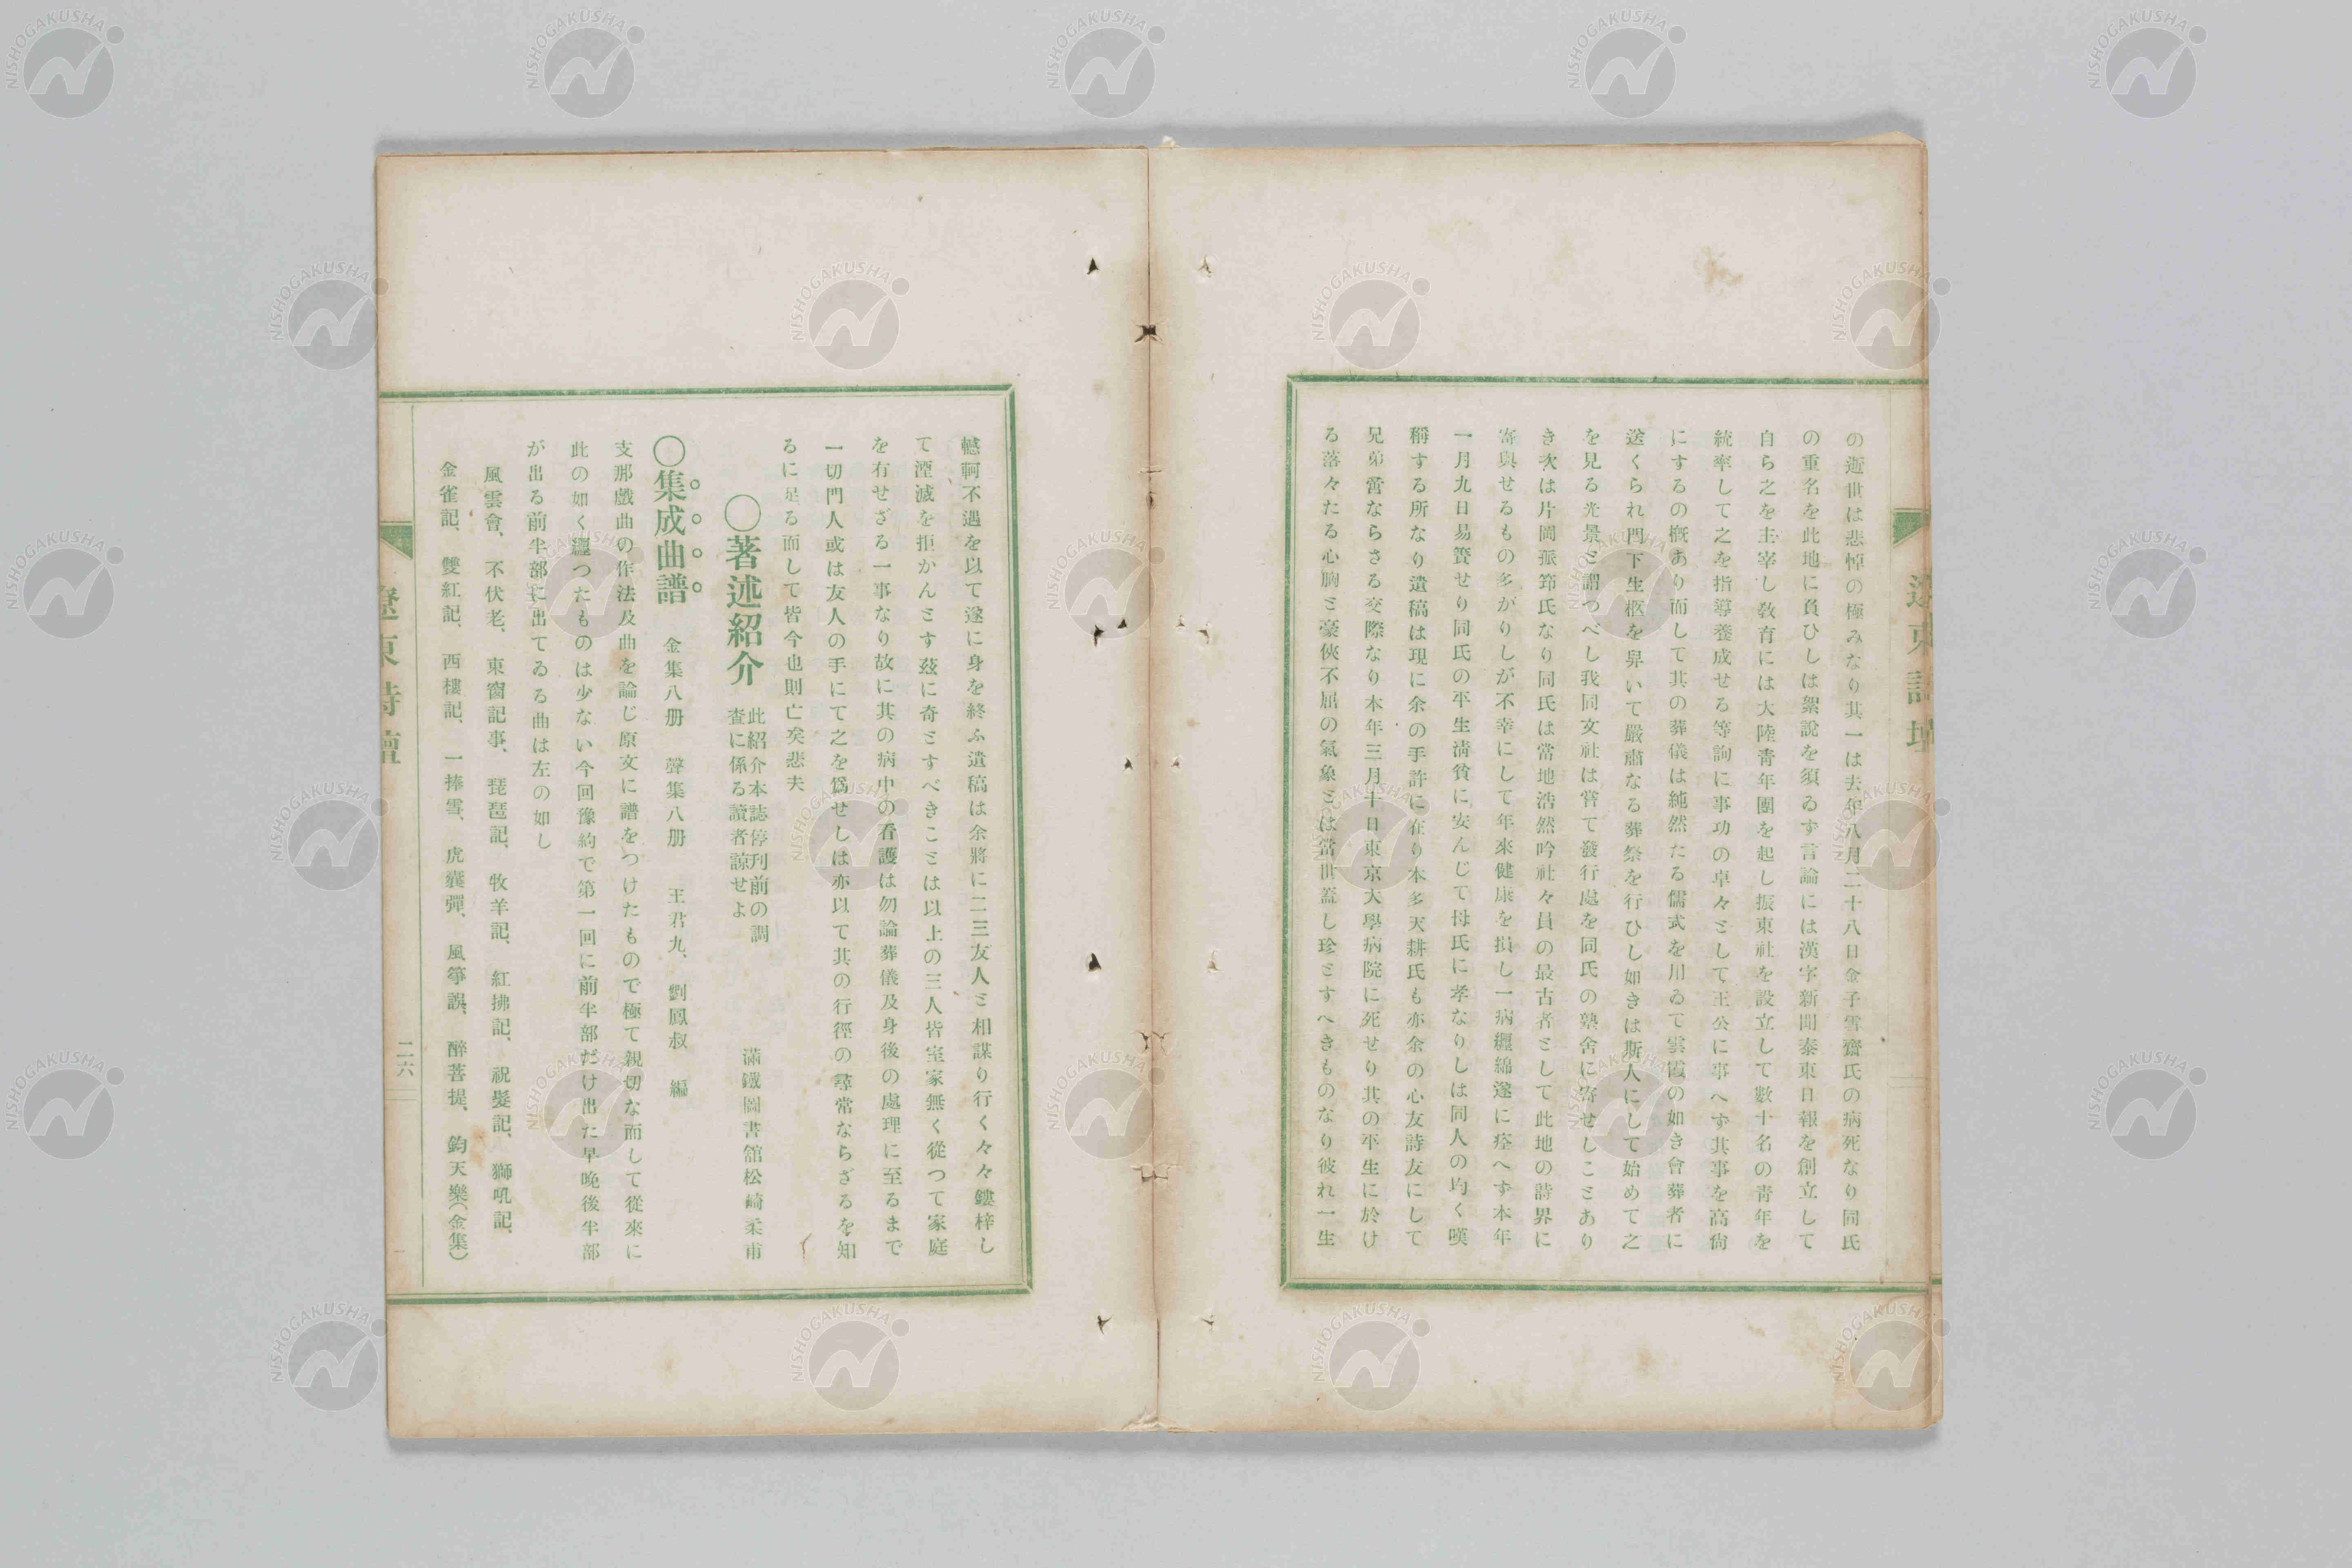 の逝世は悲悼の極みなり其一は去年八月二十八日金子雪齋氏の病死なり同氏
の重名を此地に負ひしは絮說を須ゐず言論には漢字新聞泰東日報を創立して
自ら之を主宰し敎育には大陸靑年團を起し振東社を設立して數十名の靑年を
統率して之を指導養成せる等詢に事功の卓々として王公に事へず其事を高尙
にするの槪あり而して其の葬儀は純然たる儒式を用ゐて雲霞の如き會葬者に
送くられ門下生柩を舁いて嚴肅なる葬祭を行ひし如きは斯人にして始めて之
を見る光景と謂つべし我同文社は嘗て發行處を同氏の塾舍に寄せしことあり
き次は片岡孤筇氏なり同氏は當地浩然吟社々員の最古者として此地の詩界に
寄與せるもの多かりしが不幸にして年來健康を損し一病纒綿遂に痊へず本年
一月九日易簀せり同氏の平生淸貧に安んじて母氏に孝なりしは同人の均く嘆
稱する所なり遺稿は現に余の手許に在り本多天耕氏も亦余の心友詩友にして
兄弟啻ならさる交際なり本年三月十日東京大學病院に死せり其の平生に於け
る落々たる心胸と豪俠不屈の氣象とは當世蓋し珍とすへきものなり彼れ一生
轗軻不遇を以て遂に身を終ふ遺稿は余將に二三友人と相謀り行く々々鏤梓し
て湮滅を拒かんとす玆に奇とすべきことは以上の三人皆室家無く從つて家庭
を有せざる一事なり故に其の病中の看護は勿論葬儀及身後の處理に至るまで
一切門人或は友人の手にて之を爲せしは亦以て其の行徑の尋常ならざるを知
るに足る而して皆今也則亡矣悲夫
〇著述紹介 此紹介本誌停刊前の調
査に係る讀者諒せよ
滿鐵圖書舘松崎柔甫
〇集成曲譜 金集八册 聲集八册 王君九、劉鳳叔 編
支那戲曲の作法及曲を論じ原文に譜をつけたもので極て親切な而して從來に
此の如く纒つたものは少ない今回豫約で第一回に前半部だけ出た早晩後半部
が出る前半部に出てゐる曲は左の如し
風雲會、不伏老、東窗記事、琵琶記、牧羊記、紅拂記、祝髮記、獅吼記、
金雀記、雙紅記、西樓記、一捧雪、虎囊彈、風箏誤、醉菩提、鈞天樂(金集)
遼東詩壇
二六